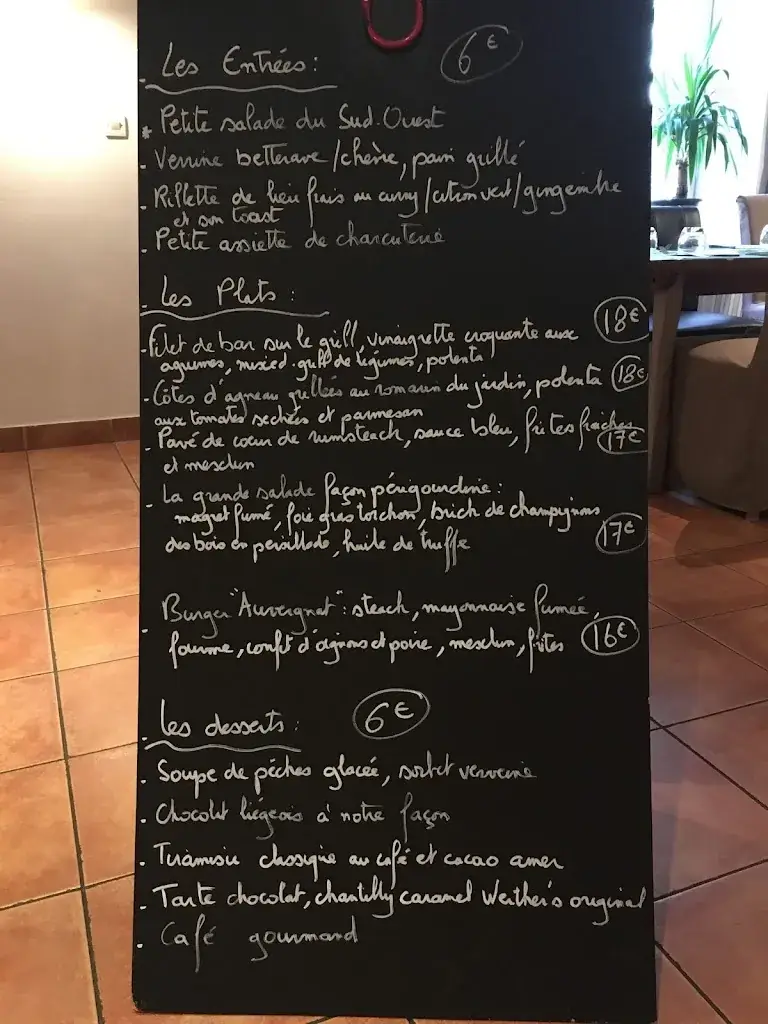 . Les Entrées : 6€
* Petite salade du Sud.Ouest
. Verrine betterave/chèvre, pain grillé
. Rillette de lieu frais au curry/citron vert/gingembre
et son toast
. Petite assiette de charcuterie
. Les Plats :
. Filet de bar sur le grill, vinaigrette croquante aux 18€
agrumes, mixed.grill de légumes, polenta
. Côtes d'agneau grillées au romarin du jardin, polenta 18€
aux tomates sechées et parmesan
. Pavé de coeur de rumsteack, sauce bleu, frites fraîches
et mesclun 17€
. La grande salade façon périgourdine :
magret fumé, foie gras torchon, brick de champignons
des bois en persillade, huile de truffe 17€
. Burger "Auvergnat" : steack, mayonnaise fumée,
fourme, confit d'oignons et poire, mesclun, frites 16€
. Les desserts : 6€
. Soupe de pêches glacée, sorbet verveine
. Chocolat liégeois à notre façon
. Tiramisu classique au café et cacao amer
. Tarte chocolat, chantilly caramel Werther's original
. Café gourmand